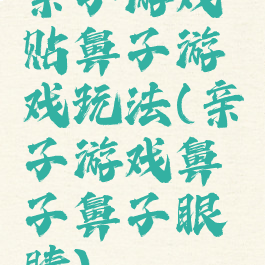 亲子游戏
贴鼻子游
戏玩法(亲
子游戏鼻
子鼻子眼
睛)